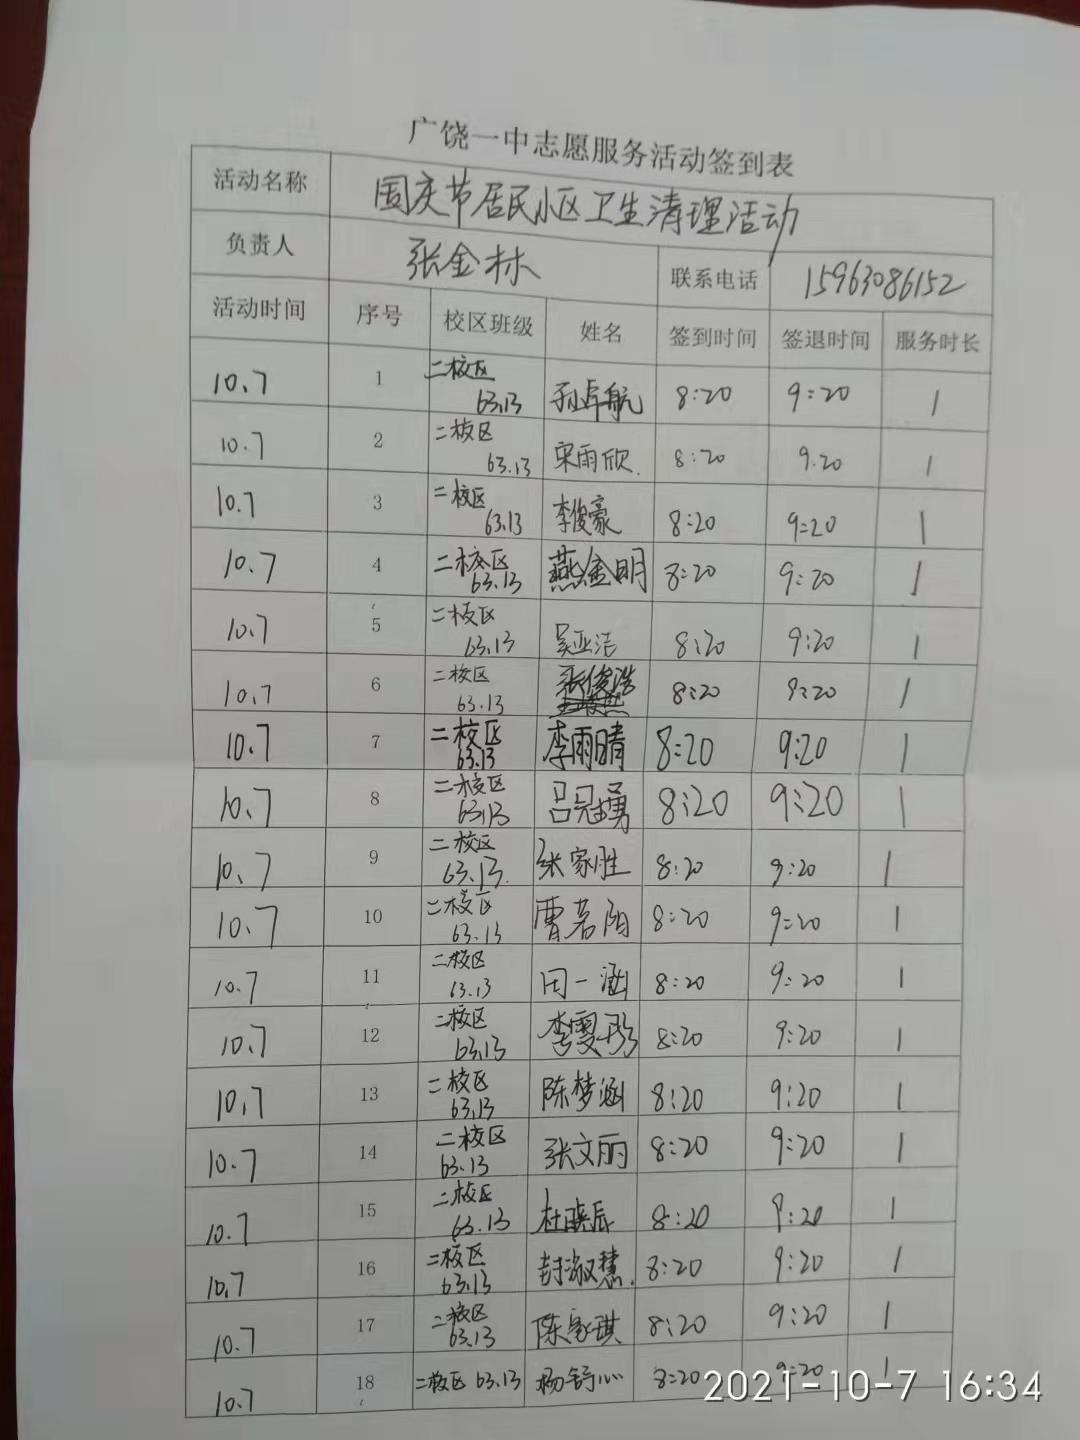 广饶一中志愿服务活动签到表
活动名称 国庆节居民小区卫生清理活动
负责人 张金林 联系电话 15963086152
活动时间 序号 校区班级 姓名 签到时间 签退时间 服务时长
10.7 1 二校区 63.13 孙卓航 8:20 9:20 1
10.7 2 二校区 63.13 宋雨欣 8:20 9:20 1
10.7 3 二校区 63.13 李俊豪 8:20 9:20 1
10.7 4 二校区 63.13 燕金明 8:20 9:20 1
10.7 5 二校区 63.13 吴亚洁 8:20 9:20 1
10.7 6 二校区 63.13 张俊浩 8:20 9:20 1
10.7 7 二校区 63.13 李雨晴 8:20 9:20 1
10.7 8 二校区 63.13 吕冠勇 8:20 9:20 1
10.7 9 二校区 63.13 张家胜 8:20 9:20 1
10.7 10 二校区 63.13 曹茗阳 8:20 9:20 1
10.7 11 二校区 63.13 田一涵 8:20 9:20 1
10.7 12 二校区 63.13 李雯彤 8:20 9:20 1
10.7 13 二校区 63.13 陈梦涵 8:20 9:20 1
10.7 14 二校区 63.13 张文丽 8:20 9:20 1
10.7 15 二校区 63.13 8:20 9:20 1
10.7 16 二校区 63.13 封淑慧 8:20 9:20 1
10.7 17 二校区 63.13 陈家琪 8:20 9:20 1
10.7 18 二校区 63.13 杨舒心 8:20 9:20 1
2021-10-7 16:34